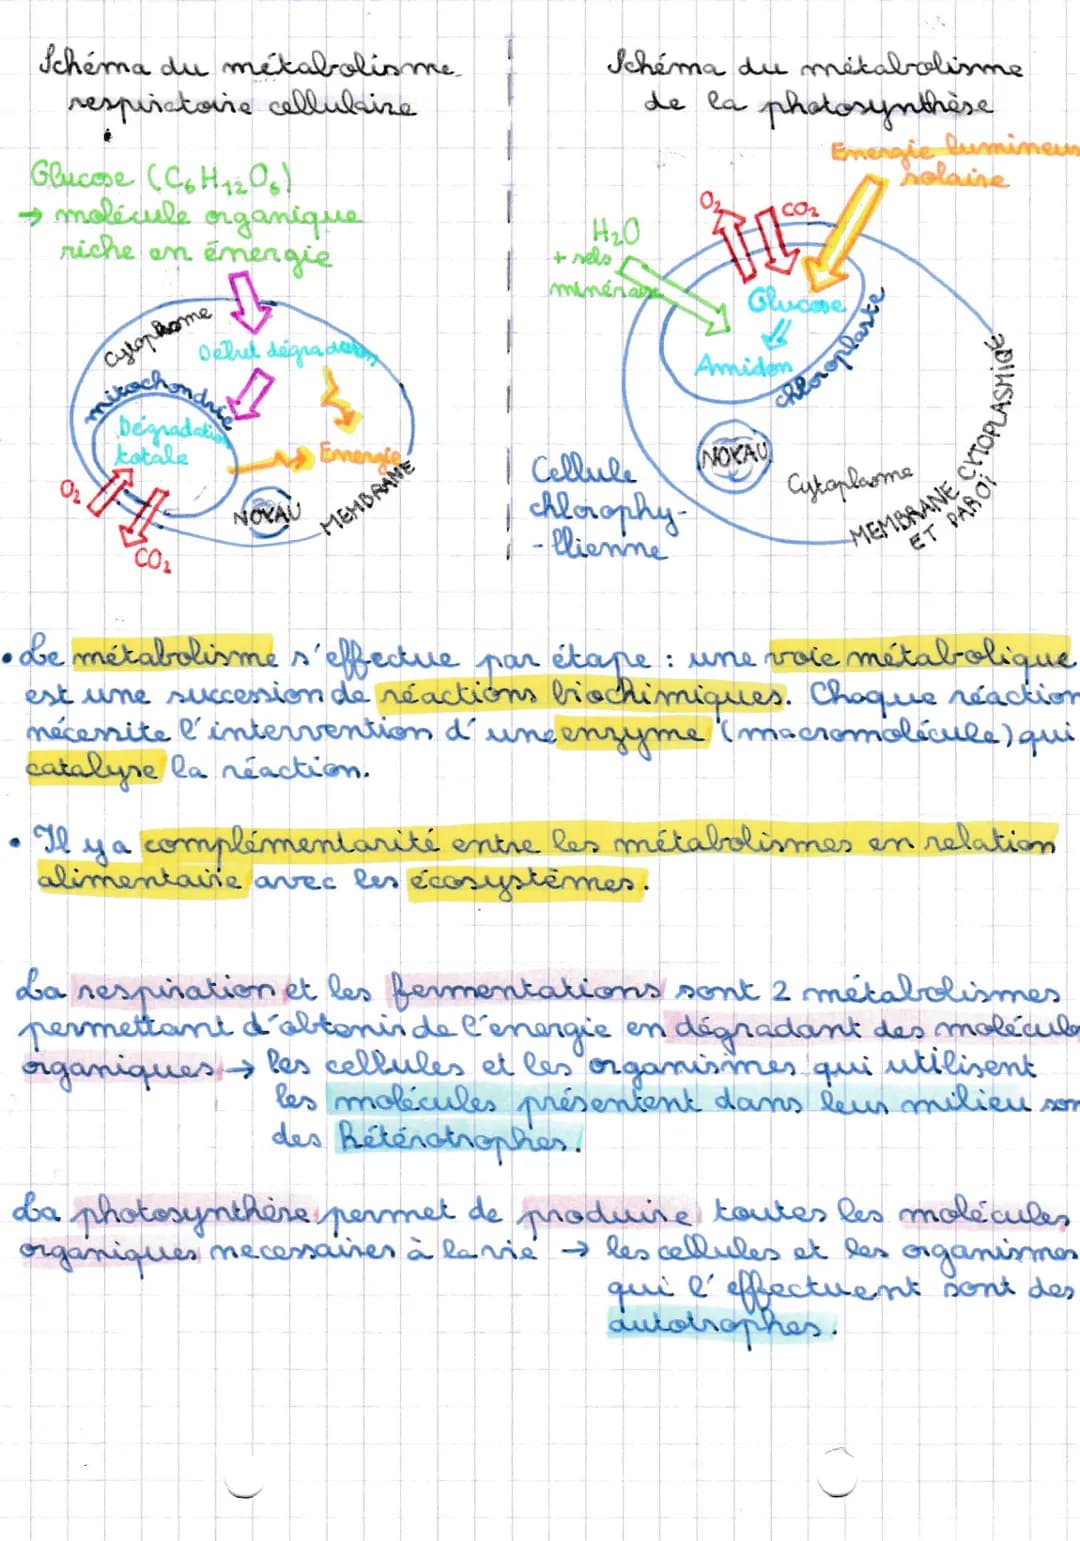 Schéma du métabolisme
respiratoire cellulaire
Glucose (C6H12O6)
→ molécule organique
riche en énergie
Cytoplasme
Début dégradation
mitochondrie
Dégradation
totale
Energie
O2
CO2
NOYAU
MEMBRANE
Schéma du métabolisme
de la photosynthèse
Energie lumineus
solaire
O2
CO2
H2O
+ sels
minéraux
Glucose
Amidon
chloroplaste
NOYAU
Cytoplasme
MEMBRANE CYTOPLASMIQUE
ET PAROI
Cellule
chlorophy-
-llienne
• Le métabolisme s'effectue par étape : une voie métabolique
est une succession de réactions biochimiques. Chaque réaction
nécessite l'intervention d'une enzyme (macromolécule) qui
catalyse la réaction.
• Il y a complémentarité entre les métabolismes en relation
alimentaire avec les écosystèmes.
La respiration et les fermentations sont 2 métabolismes
permettant d'obtenir de l'energie en dégradant des molécule
organiques → les cellules et les organismes qui utilisent
les molécules présentent dans leur milieu son
des hétérotrophes.
La photosynthèse permet de produire toutes les molécules
organiques necessaires à la vie → les cellules et les organismes
qui l'effectuent sont des
autotrophes.